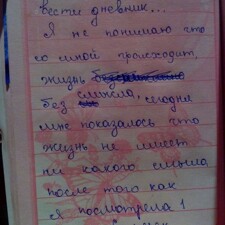 вести дневник...
Я не понимаю что
со мной происходит,
жизнь
без смысла, сегодня
мне показалось что
жизнь не имеет
ни какого смысла
после того как
я посмотрела 1